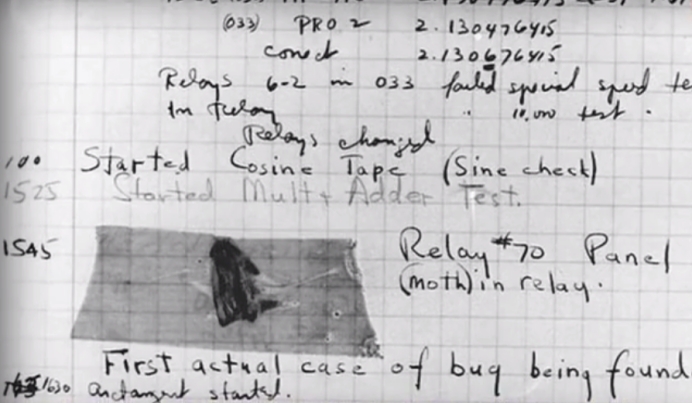 (033) PRO 2 2.130476415
conect 2.130676415
Relays 6-2 in 033 failed special speed te
In Relay 10,000 test.
Relays changed
1100 Started Cosine Tape (Sine check)
1525 Started Mult+ Adder Test.
1545 Relay #70 Panel
(moth) in relay.
First actual case of bug being found.
1630 arctangent started.